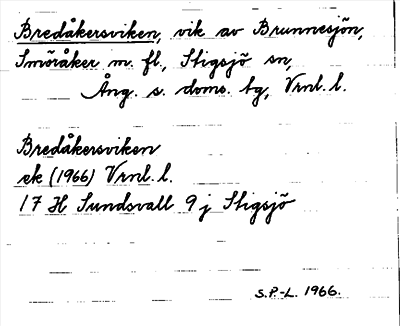 Bredåkersviken, vik av Brunnesjön,
Smöråker m. fl., Stigsjö sn,
Ång. s. doms. tg, Vrnl. l.
Bredåkersviken
ek (1966) Vrnl. l.
17 H Sundsvall 9 j Stigsjö
S.P.-L. 1966.